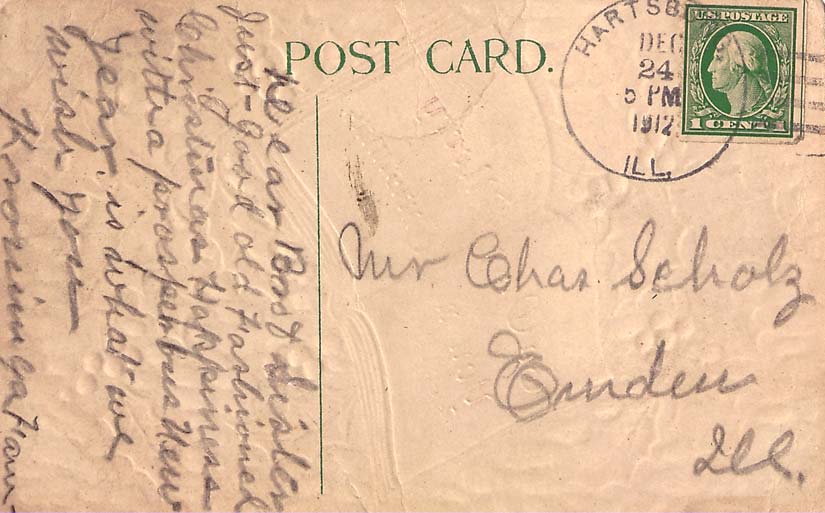 POST CARD.
HARTSB
DEC
24
5 PM
1912
ILL.
U.S. POSTAGE
1 CENT 1
Mr Chas. Scholz
Emden
Ill.
Dear Bro & Sister
Just-Good old Fashioned
Christmas Happiness
with a prosperous New
Year, is what we
wish you